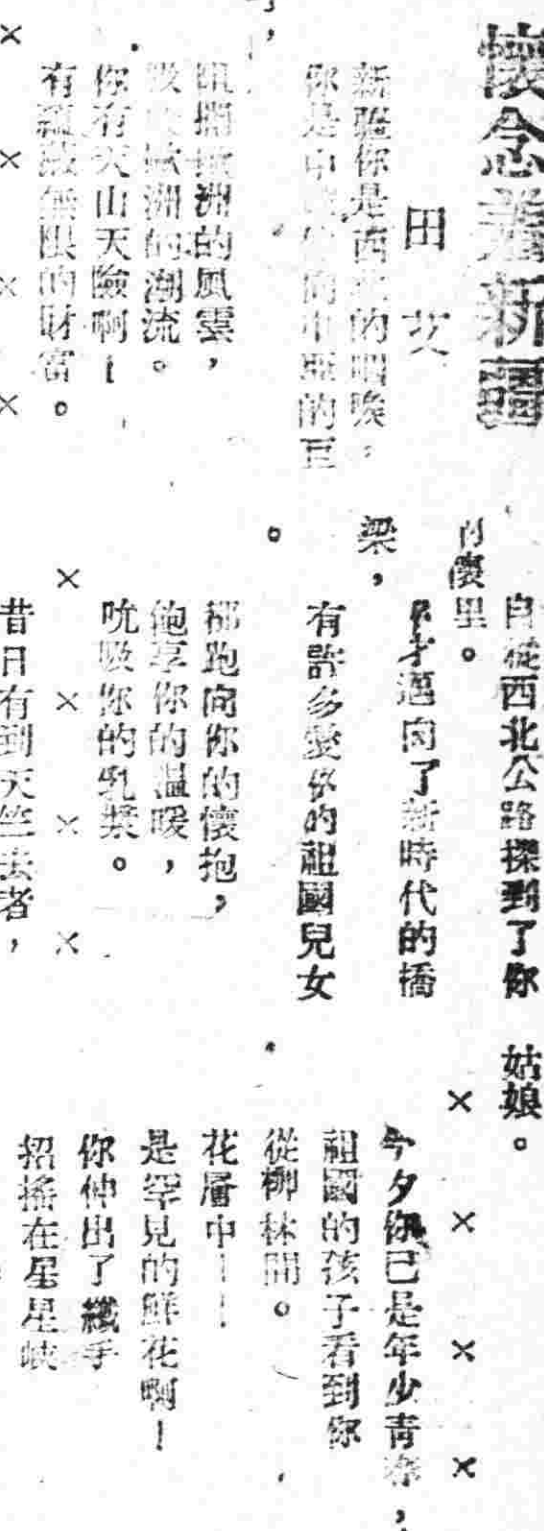 懷念着新疆
田艾
新疆你是西北的咽喉,
你是中向中亞的巨
洲的風雲,
洲的潮流。
你有天山天險啊!
有蘊藏無限的財富。
× × × ×
自從西北公路探到了你
懷里。
你才邁向了新時代的橋
梁,
有許多愛你的祖國兒女
。
都跑向你的懷抱,
飽享你的溫暖,
吮吸你的乳漿。
× × × ×
昔日有到天竺去者,
姑娘。
× × × ×
今夕你已是年少青春,
祖國的孩子看到你
從柳林間。
花層中——
是罕見的鮮花啊!
你伸出了纖手
招搖在星星峽